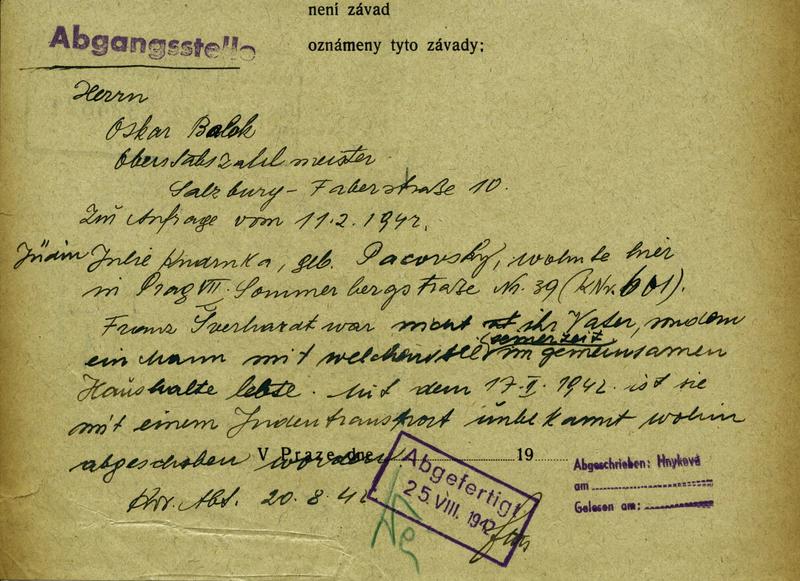 není závad
Abgangsstelle
oznámeny tyto závady:
Herrn
Oskar Balek
Oberstabszahlmeister
Salzburg - Faberstraße 10.
Zur Anfrage vom 11.2.1942.
Jüdin Julie, geb. Pacovsky, wohnte hier
in Prag VII. Sommerbergstraße Nr. 39 (KNr. 601).
Franz Šverhardt war nicht ihr Vater, sondern
ein Mann mit welchem sie (seinerzeit) im gemeinsamen
Haushalte lebte. Mit dem 17.II.1942. ist sie
mit einem Judentransport unbekannt wohin
abgeschoben worden.
V Praze dne 19
Abgefertigt
25.VIII.1942
Abgeschrieben: Hnyková
am
Gelesen am:
Abt. 20.8.42